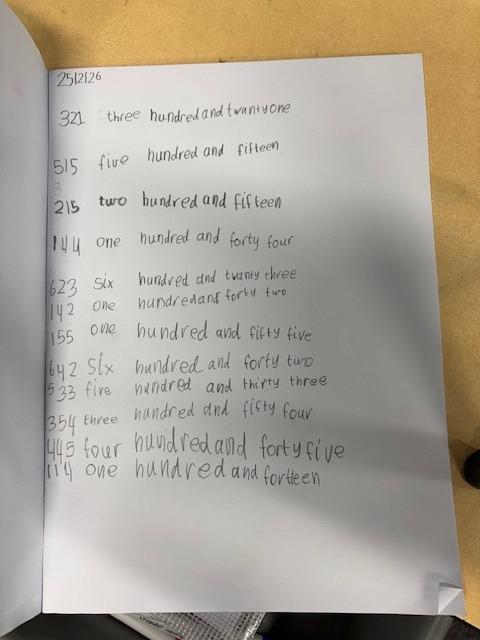 25/2/26
321 three hundred and twanty one
515 five hundred and fifteen
3
215 two hundred and fifteen
144 one hundred and forty four
623 six hundred and twanty three
142 one hundred and forty two
155 one hundred and fifty five
642 six hundred and forty two
533 five hundred and thirty three
354 three hundred and fifty four
445 four hundred and forty five
114 one hundred and forteen